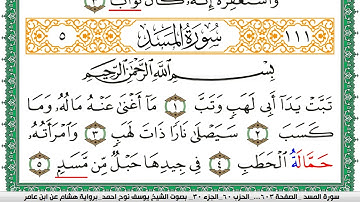 وَٱسْتَغْفِرْهُ إِنَّهُۥ كَانَ تَوَّابًا ٣
١١١ سُورَةُ المَسَدِ ٥
بِسْمِ ٱللَّهِ ٱلرَّحْمَٰنِ ٱلرَّحِيمِ
تَبَّتْ يَدَآ أَبِي لَهَبٍ وَتَبَّ ١ مَآ أَغْنَىٰ عَنْهُ مَالُهُۥ وَمَا
كَسَبَ ٢ سَيَصْلَىٰ نَارًا ذَاتَ لَهَبٍ ٣ وَٱمْرَأَتُهُۥ
حَمَّالَةُ ٱلْحَطَبِ ٤ فِي جِيدِهَا حَبْلٌ مِّن مَّسَدٍ ٥
سورة المسد _ الصفحة ٦٠٣... الحزب ٦٠_الجزء ٣٠. بصوت الشيخ يوسف نوح احمد برواية هشام عن ابن عامر